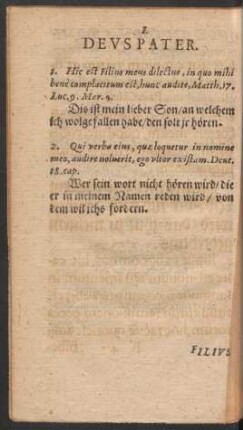 I.
DEVS PATER.
1. Hic est Filius meus dilectus, in quo mihi
benè complacitum est, hunc audite, Matth. 17.
Luc. 9. Mar. 9.
Dis ist mein lieber Son/an welchem
ich wolgefallen habe/den solt jr hören.
2. Qui verba eius, quæ loquetur in nomine
meo, audire noluerit, ego vltor existam. Deut.
18. cap.
Wer sein wort nicht hören wird/die
er in meinem Namen reden wird/von
dem wil ichs fordern.
FILIVS